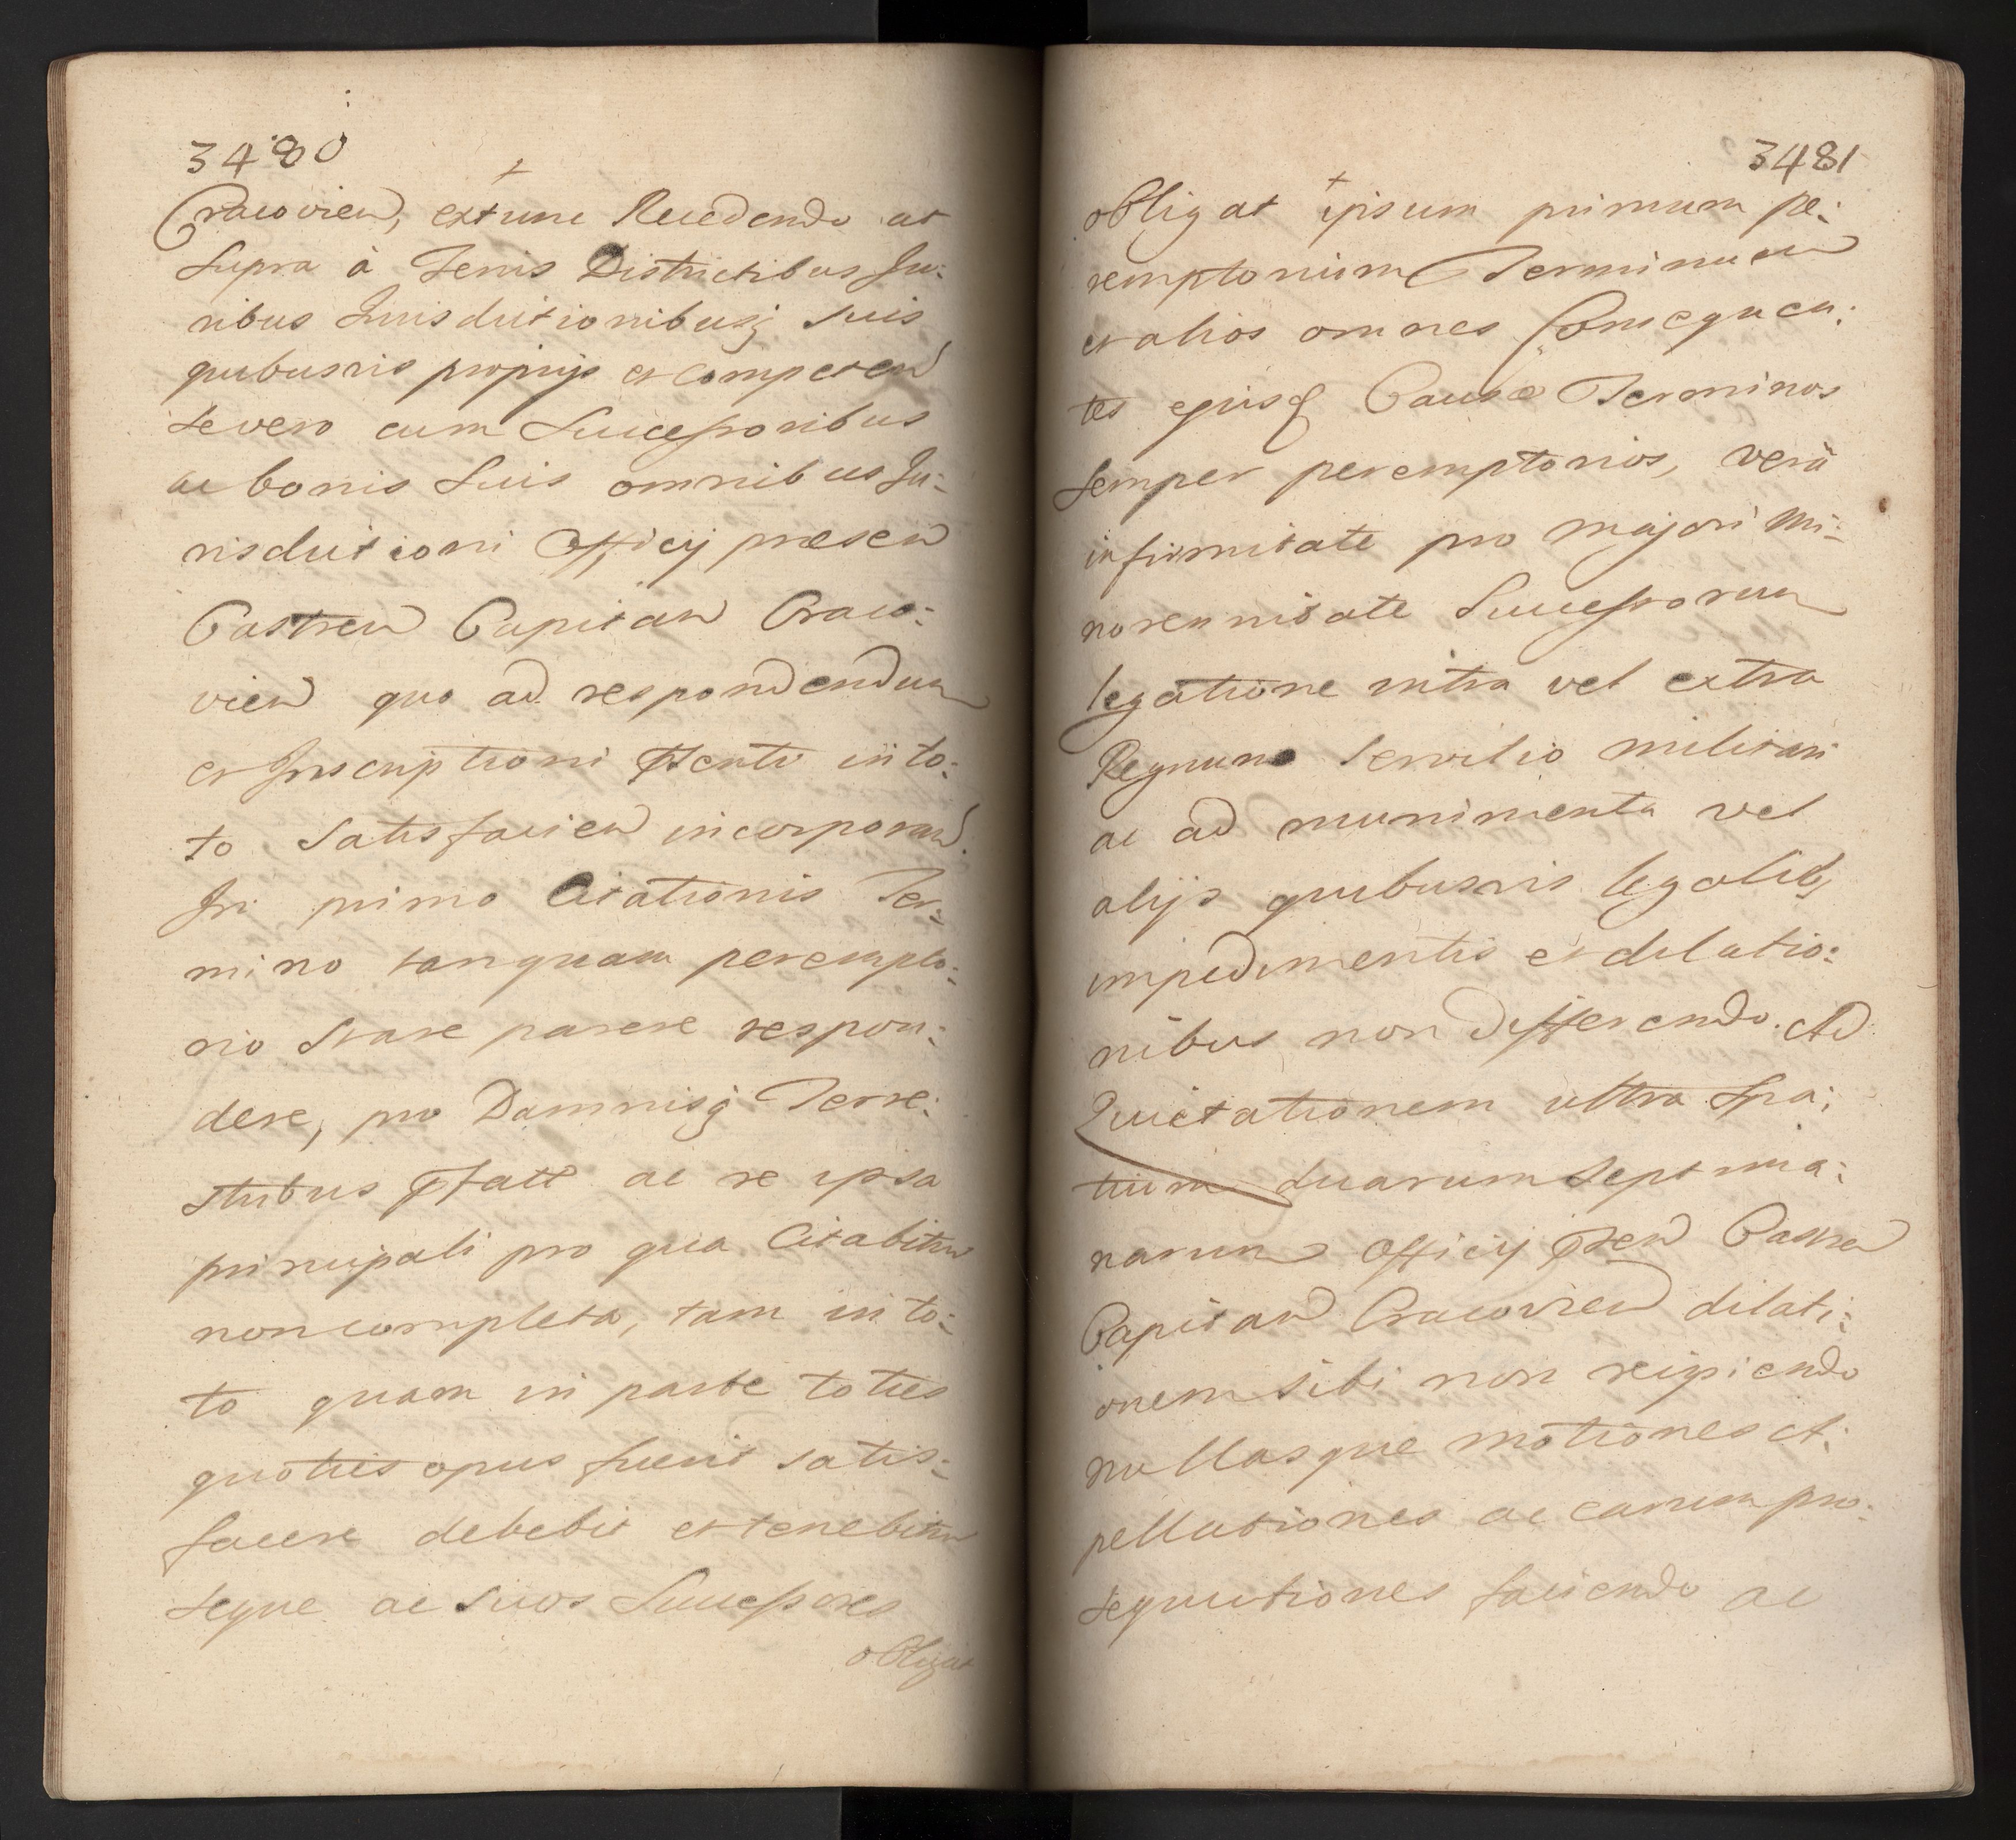 3480
Cracovien, extunc Recedendo ut
Supra à Terris Districtibus Ju:
ribus Jurisdictionibusq suis
quibusvis proprijs et competen
se vero cum Successoribus
ac bonis Suis omnibus Ju:
risdictioni Officij præsen
Castren Capitan Craco:
vien quo ad respondendum
et Inscriptioni Psenti in to:
to Satisfacien incorporan.
In primo Citationis Ter:
mino tanquam perempto:
rio Stare parere respon:
dere, pro Damnisq Terre:
stribus ac re ipsa
principali pro qua Citabitur
non completa, tam in to:
to quam in parte toties
quoties opus fuerit satis:
facere debebit et tenebitur
seque ac suos Successores
obligat
3481
obligat ipsum primum pe:
remptorium Terminum
et alios omnes Consequen:
tes ejusq Causæ Terminos
Semper peremptorios, verâ
infirmitate pro majori Mi:
norennitate Successorum
legatione intra vel extra
Regnum Servitio militari
ac ad munimenta vel
alijs quibusvis legalibq
impedimentis et dilatio:
nibus non differendo. Ad
Quietationem ultra Spa:
tium duarum Septima:
narum Officij Psen Castren
Capitan Cracovien dilati:
onem sibi non recipiendo
nullasque motiones A:
pellationes ac earum pro:
sequutiones faciendo ac